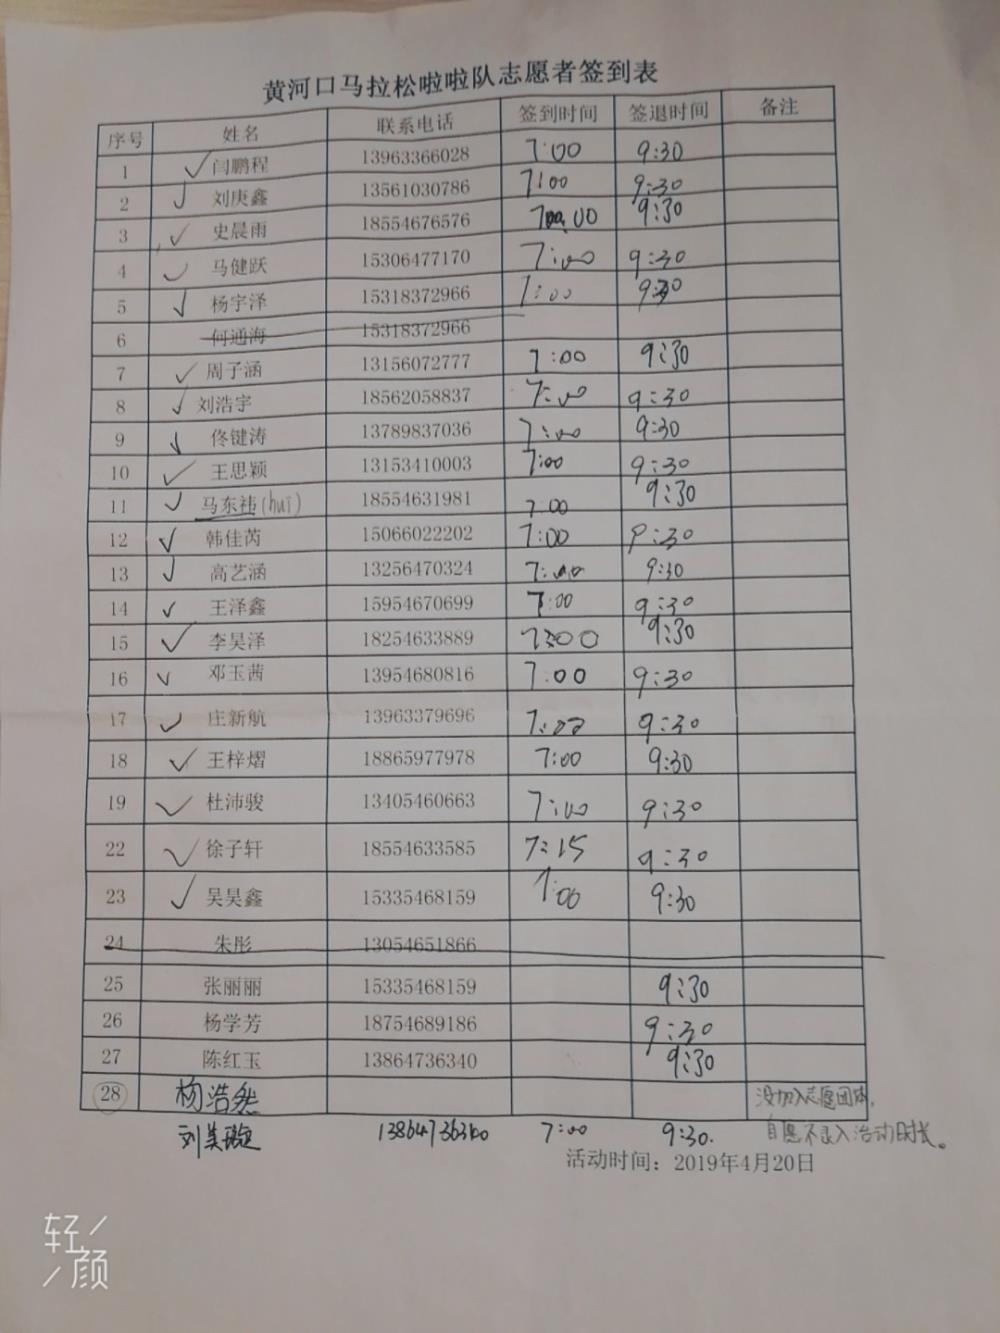 黄河口马拉松啦啦队志愿者签到表
序号 姓名 联系电话 签到时间 签退时间 备注
1 ✓ 闫鹏程 13963366028 7:00 9:30
2 ✓ 刘庚鑫 13561030786 7:00 9:30
3 ✓ 史晨雨 18554676576 7:00 9:30
4 ✓ 马健跃 15306477170 7:00 9:30
5 ✓ 杨宇泽 15318372966 7:00 9:30
6 何通海 15318372966
7 ✓ 周子涵 13156072777 7:00 9:30
8 ✓ 刘浩宇 18562058837 7:00 9:30
9 ✓ 佟键涛 13789837036 7:00 9:30
10 ✓ 王思颖 13153410003 7:00 9:30
11 ✓ 马东祎(huī) 18554631981 7:00 9:30
12 ✓ 韩佳芮 15066022202 7:00 9:30
13 ✓ 高艺涵 13256470324 7:00 9:30
14 ✓ 王泽鑫 15954670699 7:00 9:30
15 ✓ 李昊泽 18254633889 7:00 9:30
16 ✓ 邓玉茜 13954680816 7:00 9:30
17 ✓ 庄新航 13963379696 7:00 9:30
18 ✓ 王梓熠 18865977978 7:00 9:30
19 ✓ 杜沛骏 13405460663 7:00 9:30
22 ✓ 徐子轩 18554633585 7:15 9:30
23 ✓ 吴昊鑫 15335468159 7:00 9:30
24 朱彤 13054651866
25 张丽丽 15335468159 9:30
26 杨学芳 18754689186 9:30
27 陈红玉 13864736340 9:30
28 杨浩然 没加入志愿团体,
刘美璇 13864736340 7:00 9:30. 自愿不录入活动时长。
活动时间：2019年4月20日
轻
颜